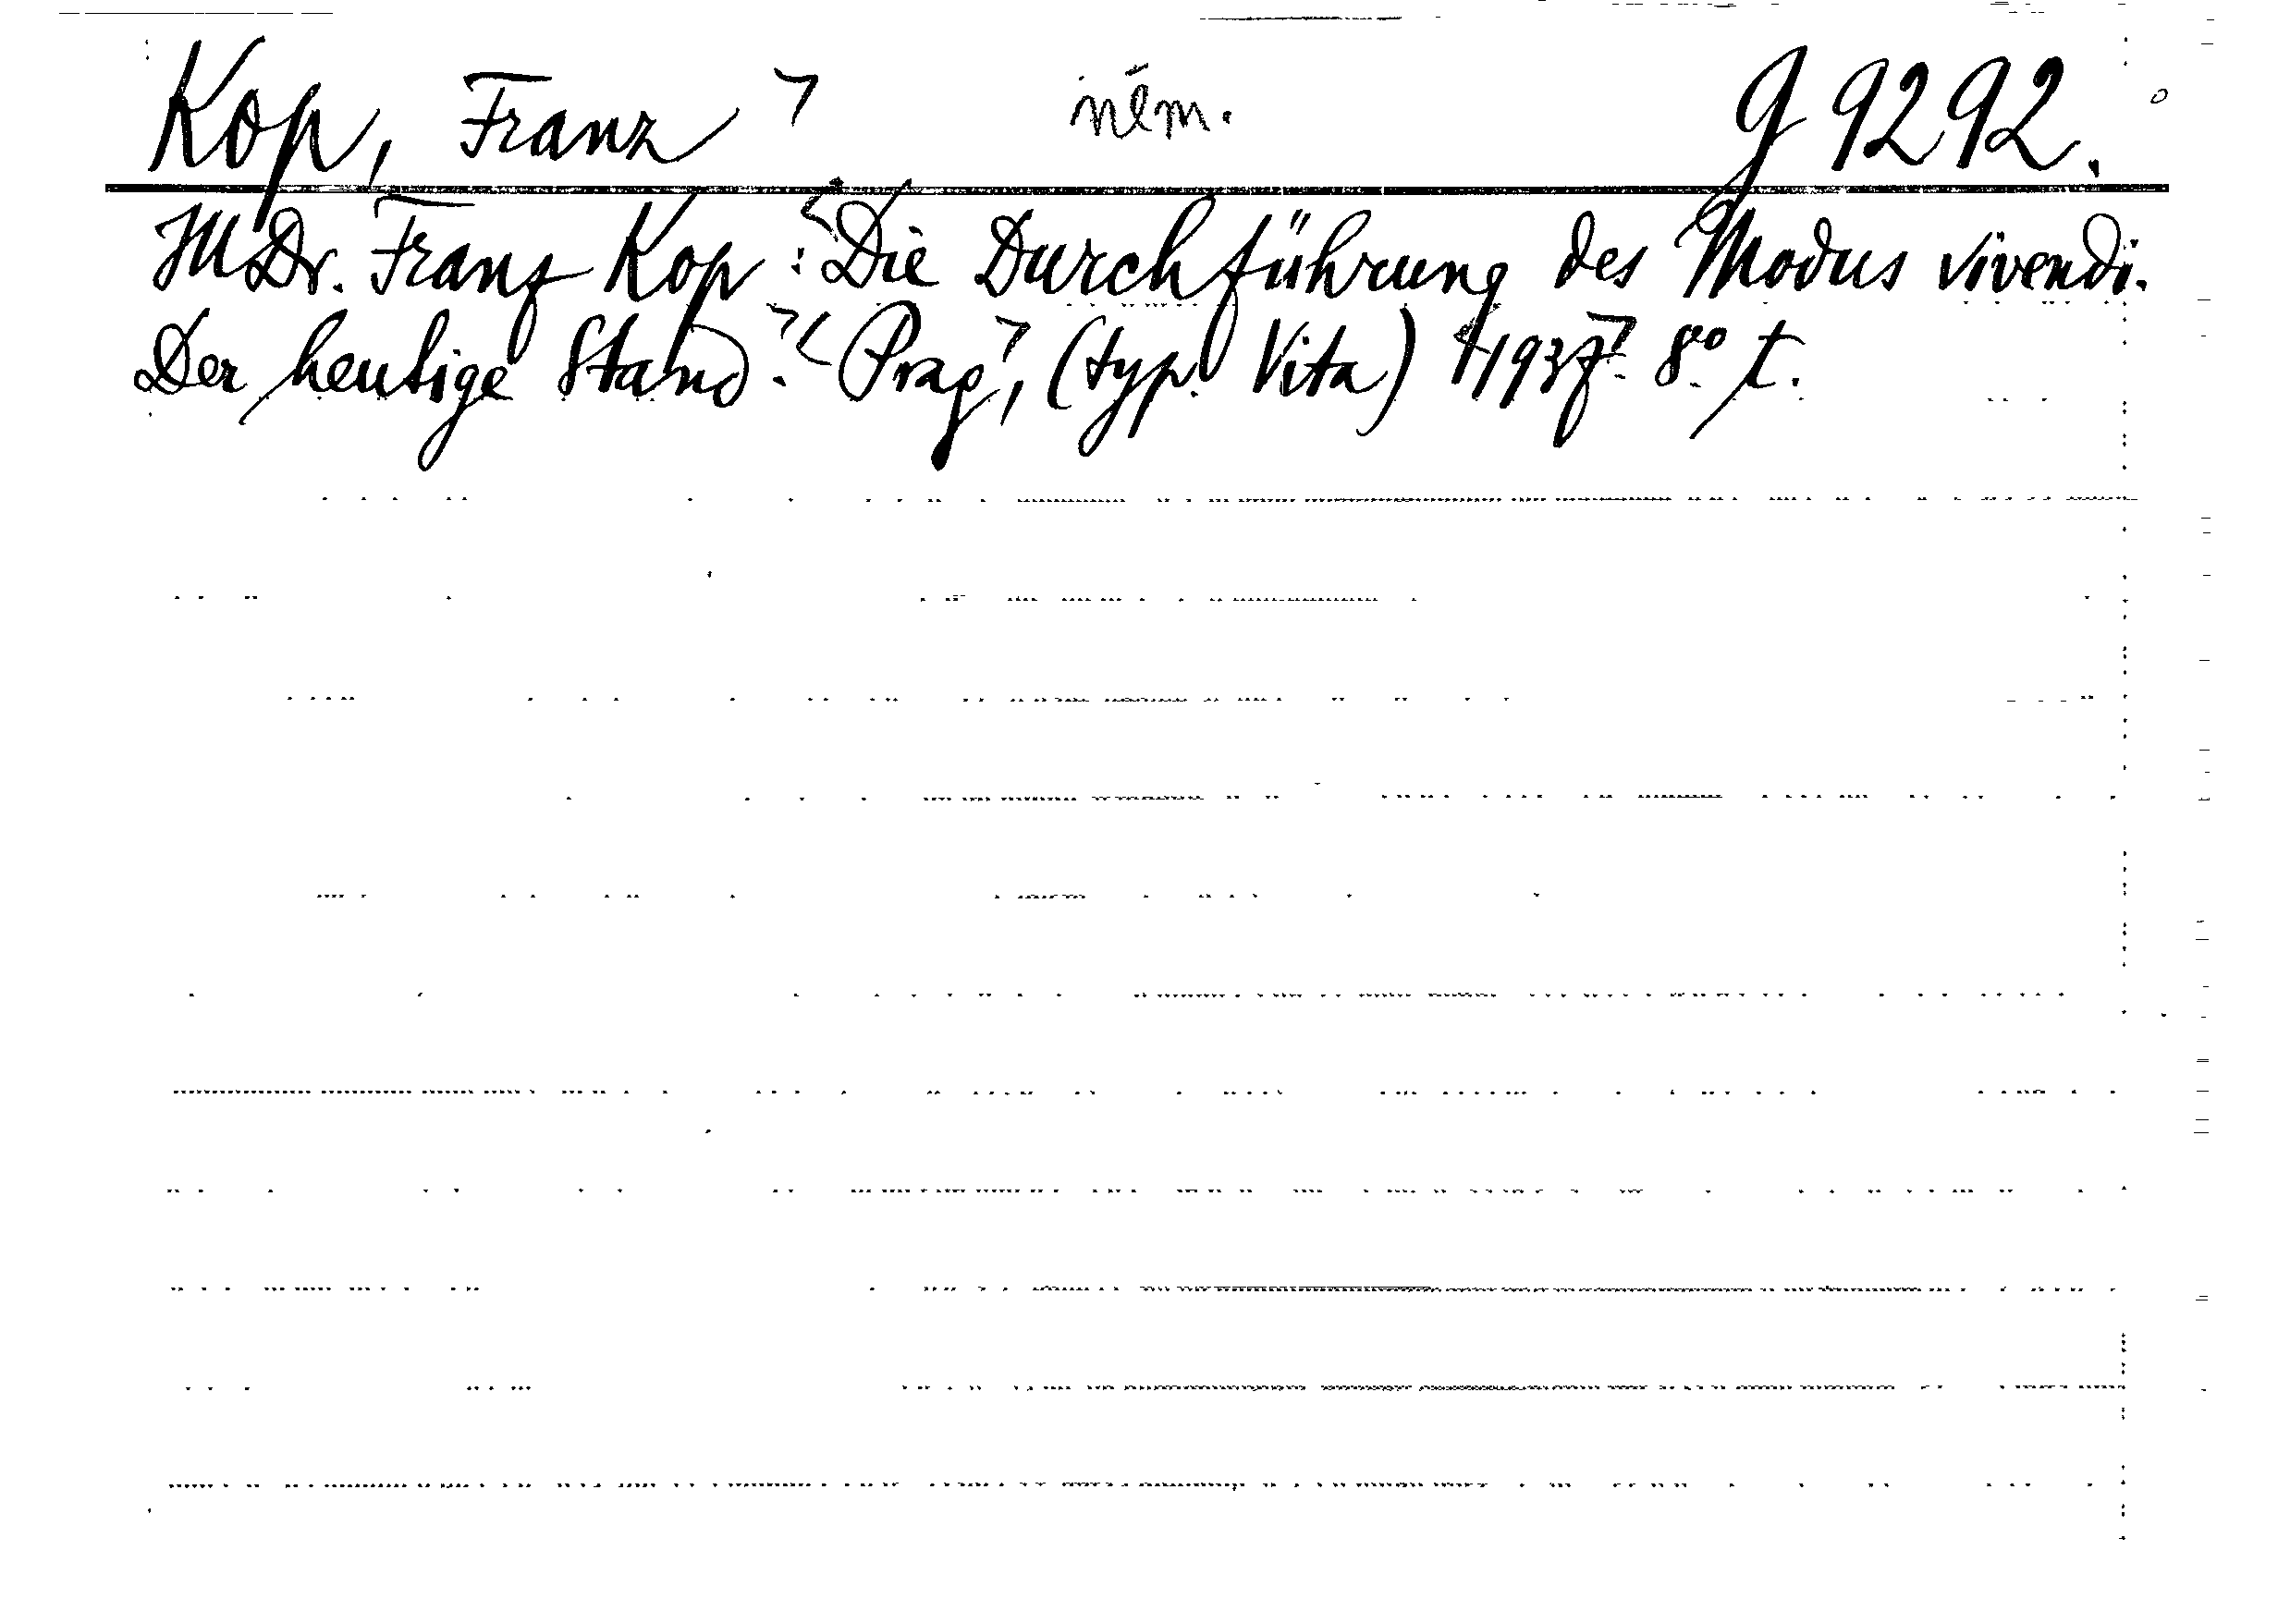 Kop, Franz něm. g 9292.
JUDr. Franz Kop: Die Durchführung des Modus vivendi.
Der heutige Stand. Prag, (typ. Vita) 1937. 8° t.